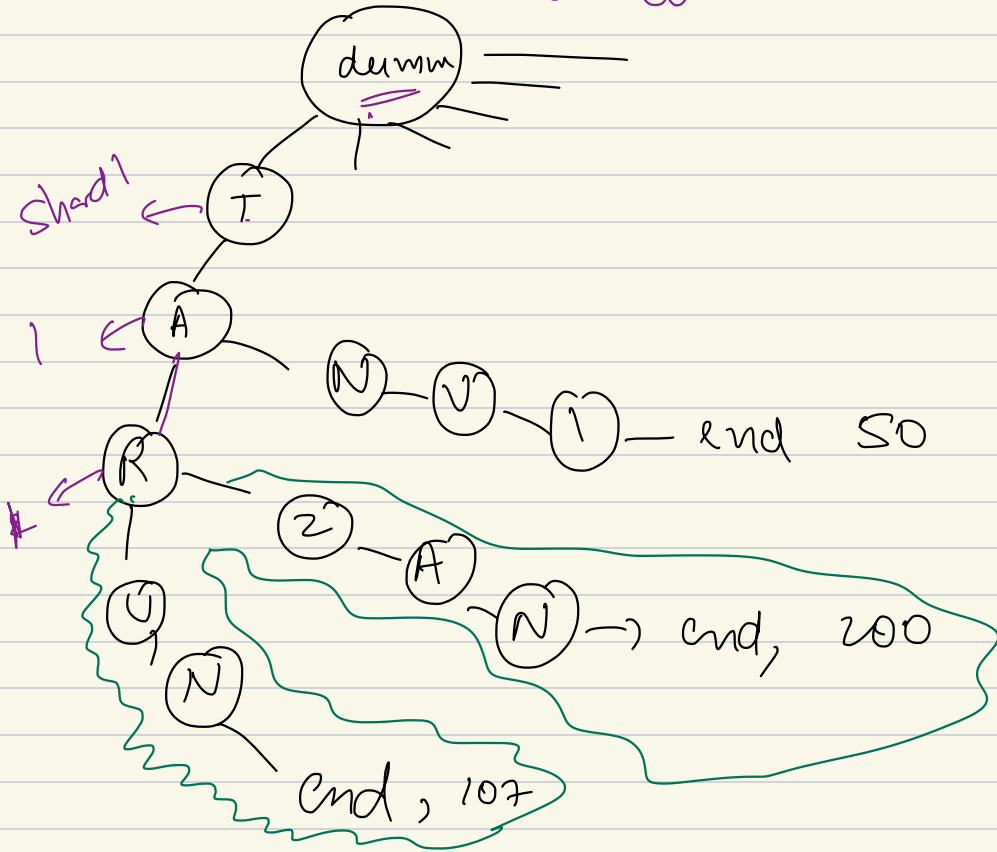 dumm
Shard 1
T
A
1
N U I end 50
R
1
Z A N → end, 200
U
N
end, 107